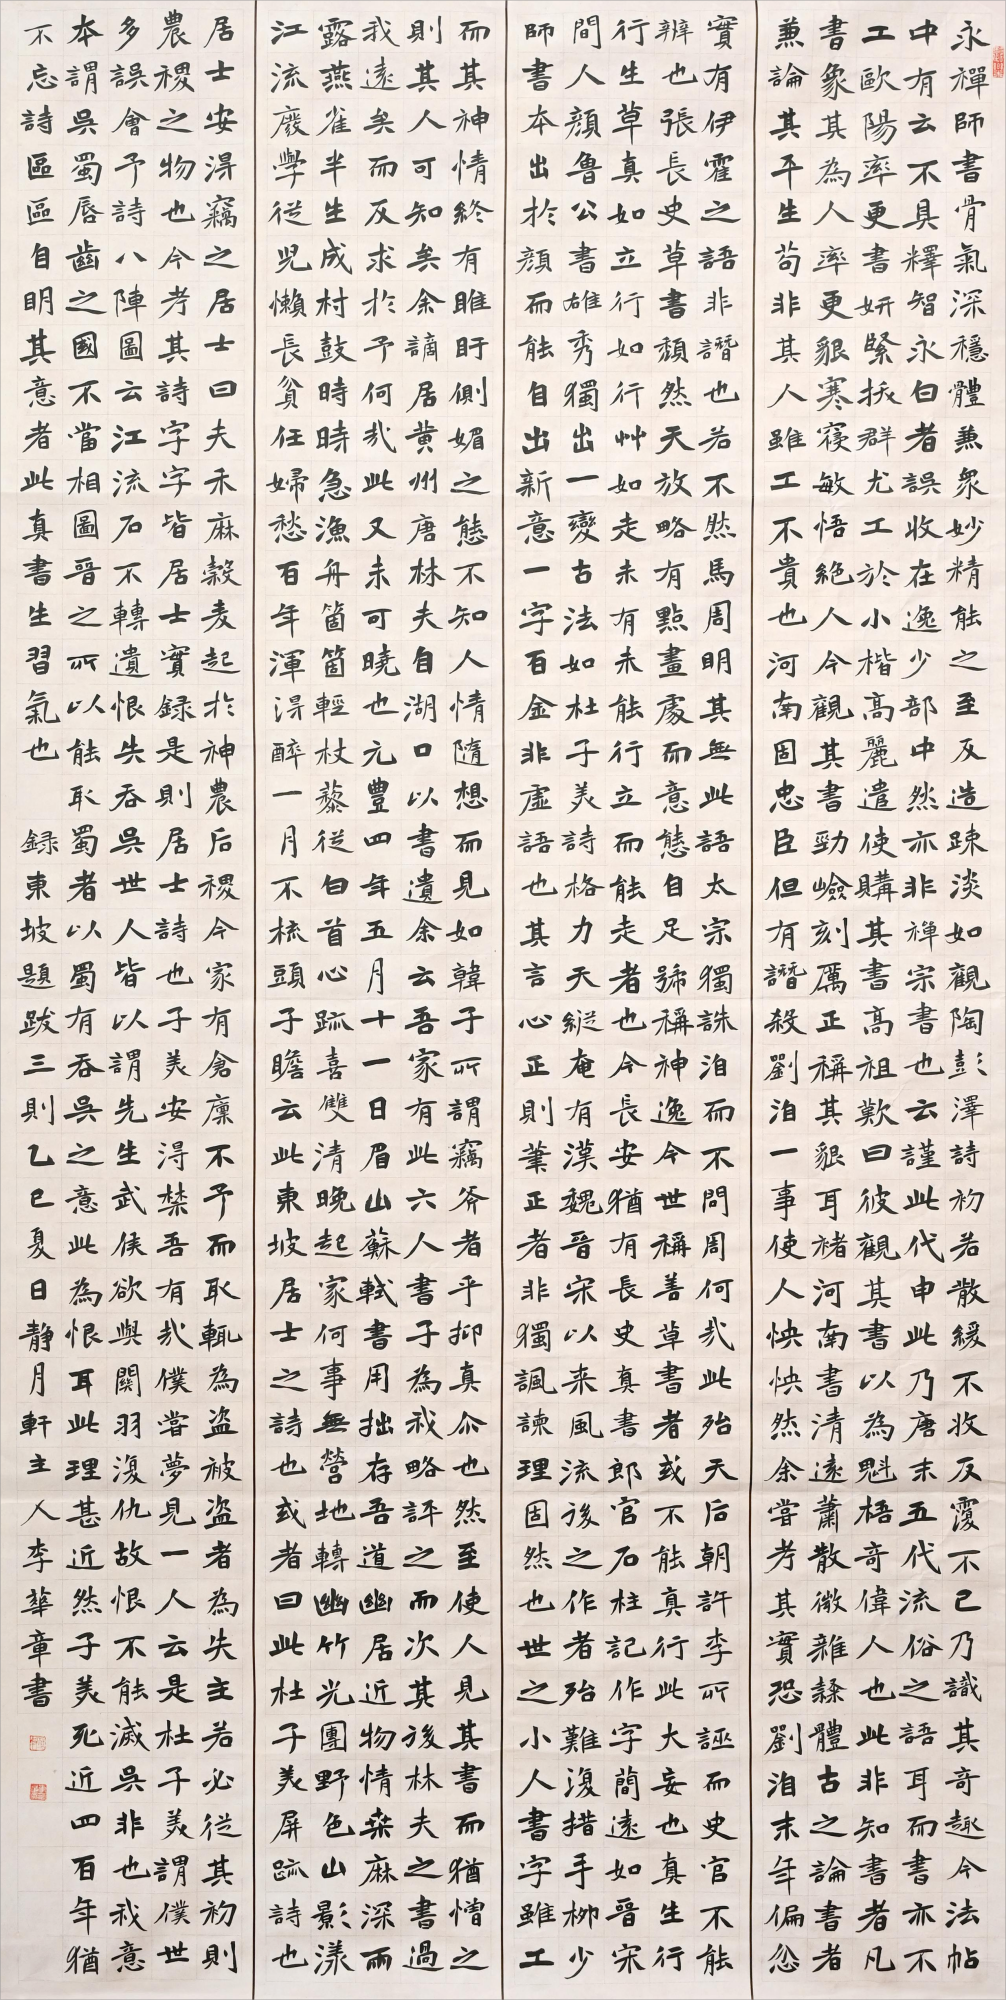 永禪師書骨氣深穩體兼衆妙精能之至反造疎淡如觀陶彭澤詩初若散緩不收反覆不已乃識其奇趣今法帖
中有云不具釋智永白者誤收在逸少部中然亦非禪宗書也云謹此代申此乃唐末五代流俗之語耳而書亦不
工歐陽率更書妍緊拔群尤工於小楷高麗遣使購其書高祖歎曰彼觀其書以為魁梧奇偉人也此非知書者凡
書象其為人率更貌寒寢敏悟絕人今觀其書勁嶮刻厲正稱其貌耳褚河南書清遠蕭散微雜隸體古之論書者
兼論其平生苟非其人雖工不貴也河南固忠臣但有譖殺劉洎一事使人怏怏然余嘗考其實恐劉洎末年偏忿
實有伊霍之語非譖也若不然馬周明其無此語太宗獨誅洎而不問周何哉此殆天后朝許李所誣而史官不能
辨也張長史草書頹然天放略有點畫處而意態自足號稱神逸今世稱善草書者或不能真行此大妄也真生行
行生草真如立行如行艸如走未有未能行立而能走者也今長安猶有長史真書郎官石柱記作字簡遠如晉宋
間人顏魯公書雄秀獨出一變古法如杜子美詩格力天縱奄有漢魏晉宋以来風流後之作者殆難復措手柳少
師書本出於顏而能自出新意一字百金非虛語也其言心正則筆正者非獨諷諫理固然也世之小人書字雖工
而其神情終有睢盱側媚之態不知人情隨想而見如韓子所謂竊斧者乎抑真尒也然至使人見其書而猶憎之
則其人可知矣余謫居黄州唐林夫自湖口以書遺余云吾家有此六人書子為我略評之而次其後林夫之書過
我遠矣而反求於予何哉此又未可曉也元豐四年五月十一日眉山蘇軾書用拙存吾道幽居近物情桒麻深雨
露燕雀半生成村鼓時時急漁舟箇箇輕杖藜從白首心跡喜雙清晚起家何事無營地轉幽竹光團野色山影漾
江流廢學從兒懶長貧任婦愁百年渾得醉一月不梳頭子瞻云此東坡居士之詩也或者曰此杜子美屏跡詩也
居士安得竊之居士曰夫禾麻穀麦起於神農后稷今家有倉廩不予而取輒為盗被盗者為失主若必從其初則
農稷之物也今考其詩字字皆居士實録是則居士詩也子美安得禁吾有哉僕嘗夢見一人云是杜子美謂僕世
多誤會予詩八陣圖云江流石不轉遺恨失吞吳世人皆以謂先生武侯欲與關羽復仇故恨不能滅吳非也我意
本謂吳蜀唇齒之國不當相圖晉之所以能取蜀者以蜀有吞吳之意此為恨耳此理甚近然子美死近四百年猶
不忘詩區區自明其意者此真書生習氣也 録東坡題跋三則乙巳夏日静月軒主人李華章書